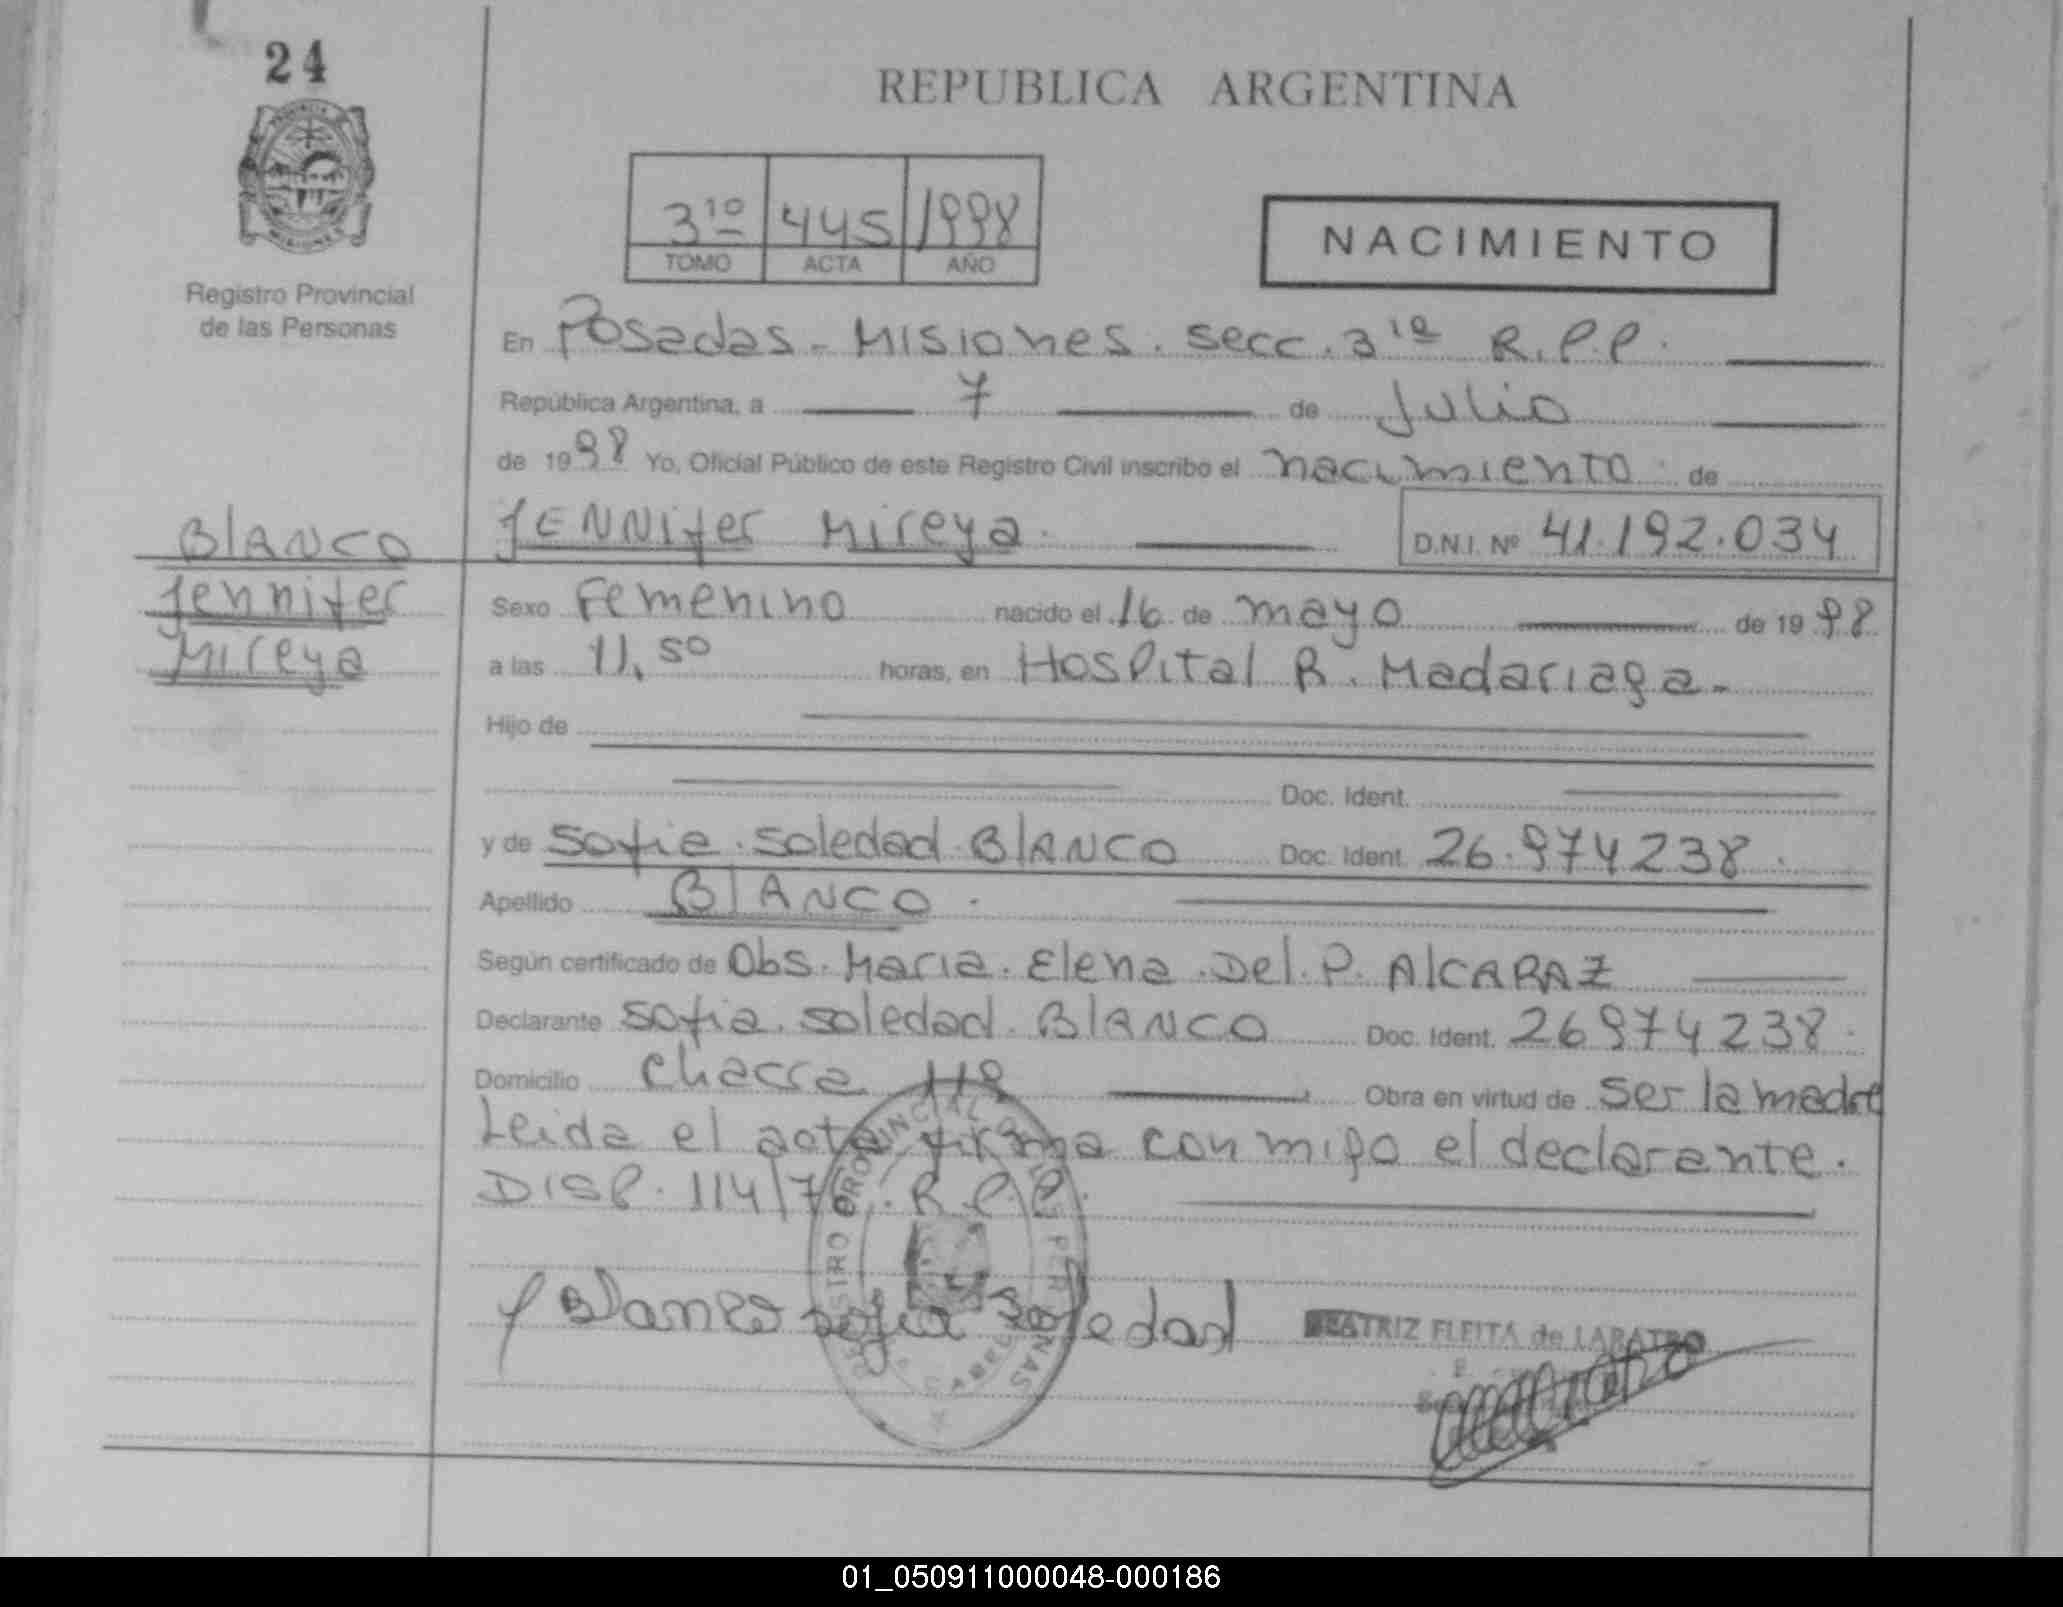 24
REPUBLICA ARGENTINA
3ro 445 1998
TOMO ACTA AÑO
NACIMIENTO
Registro Provincial
de las Personas
En Posadas - Misiones. secc. 3ra R.P.P.
República Argentina, a 7 de Julio
de 1998 Yo, Oficial Público de este Registro Civil inscribo el nacimiento de
Blanco
Jennifer
Mireya
JENNifer Mireya. D.N.I. Nº 41.192.034
Sexo Femenino nacido el 16 de mayo de 1998
a las 11,50 horas, en Hospital R. Madariaga.
Hijo de
Doc. Ident.
y de Sofia Soledad BlANCO Doc. Ident. 26.974238.
Apellido BlANCO.
Según certificado de Obs. Maria Elena Del P. AlCARAZ
Declarante Sofia Soledad BlANCO Doc. Ident. 26974238.
Domicilio Chacra 118 Obra en virtud de Ser la madre
Leida el acta firma conmigo el declarante.
DISP. 114/76. R.P.P.
Blanco Sofia Soledad
BEATRIZ FLEITA de LABATRO
01_050911000048-000186